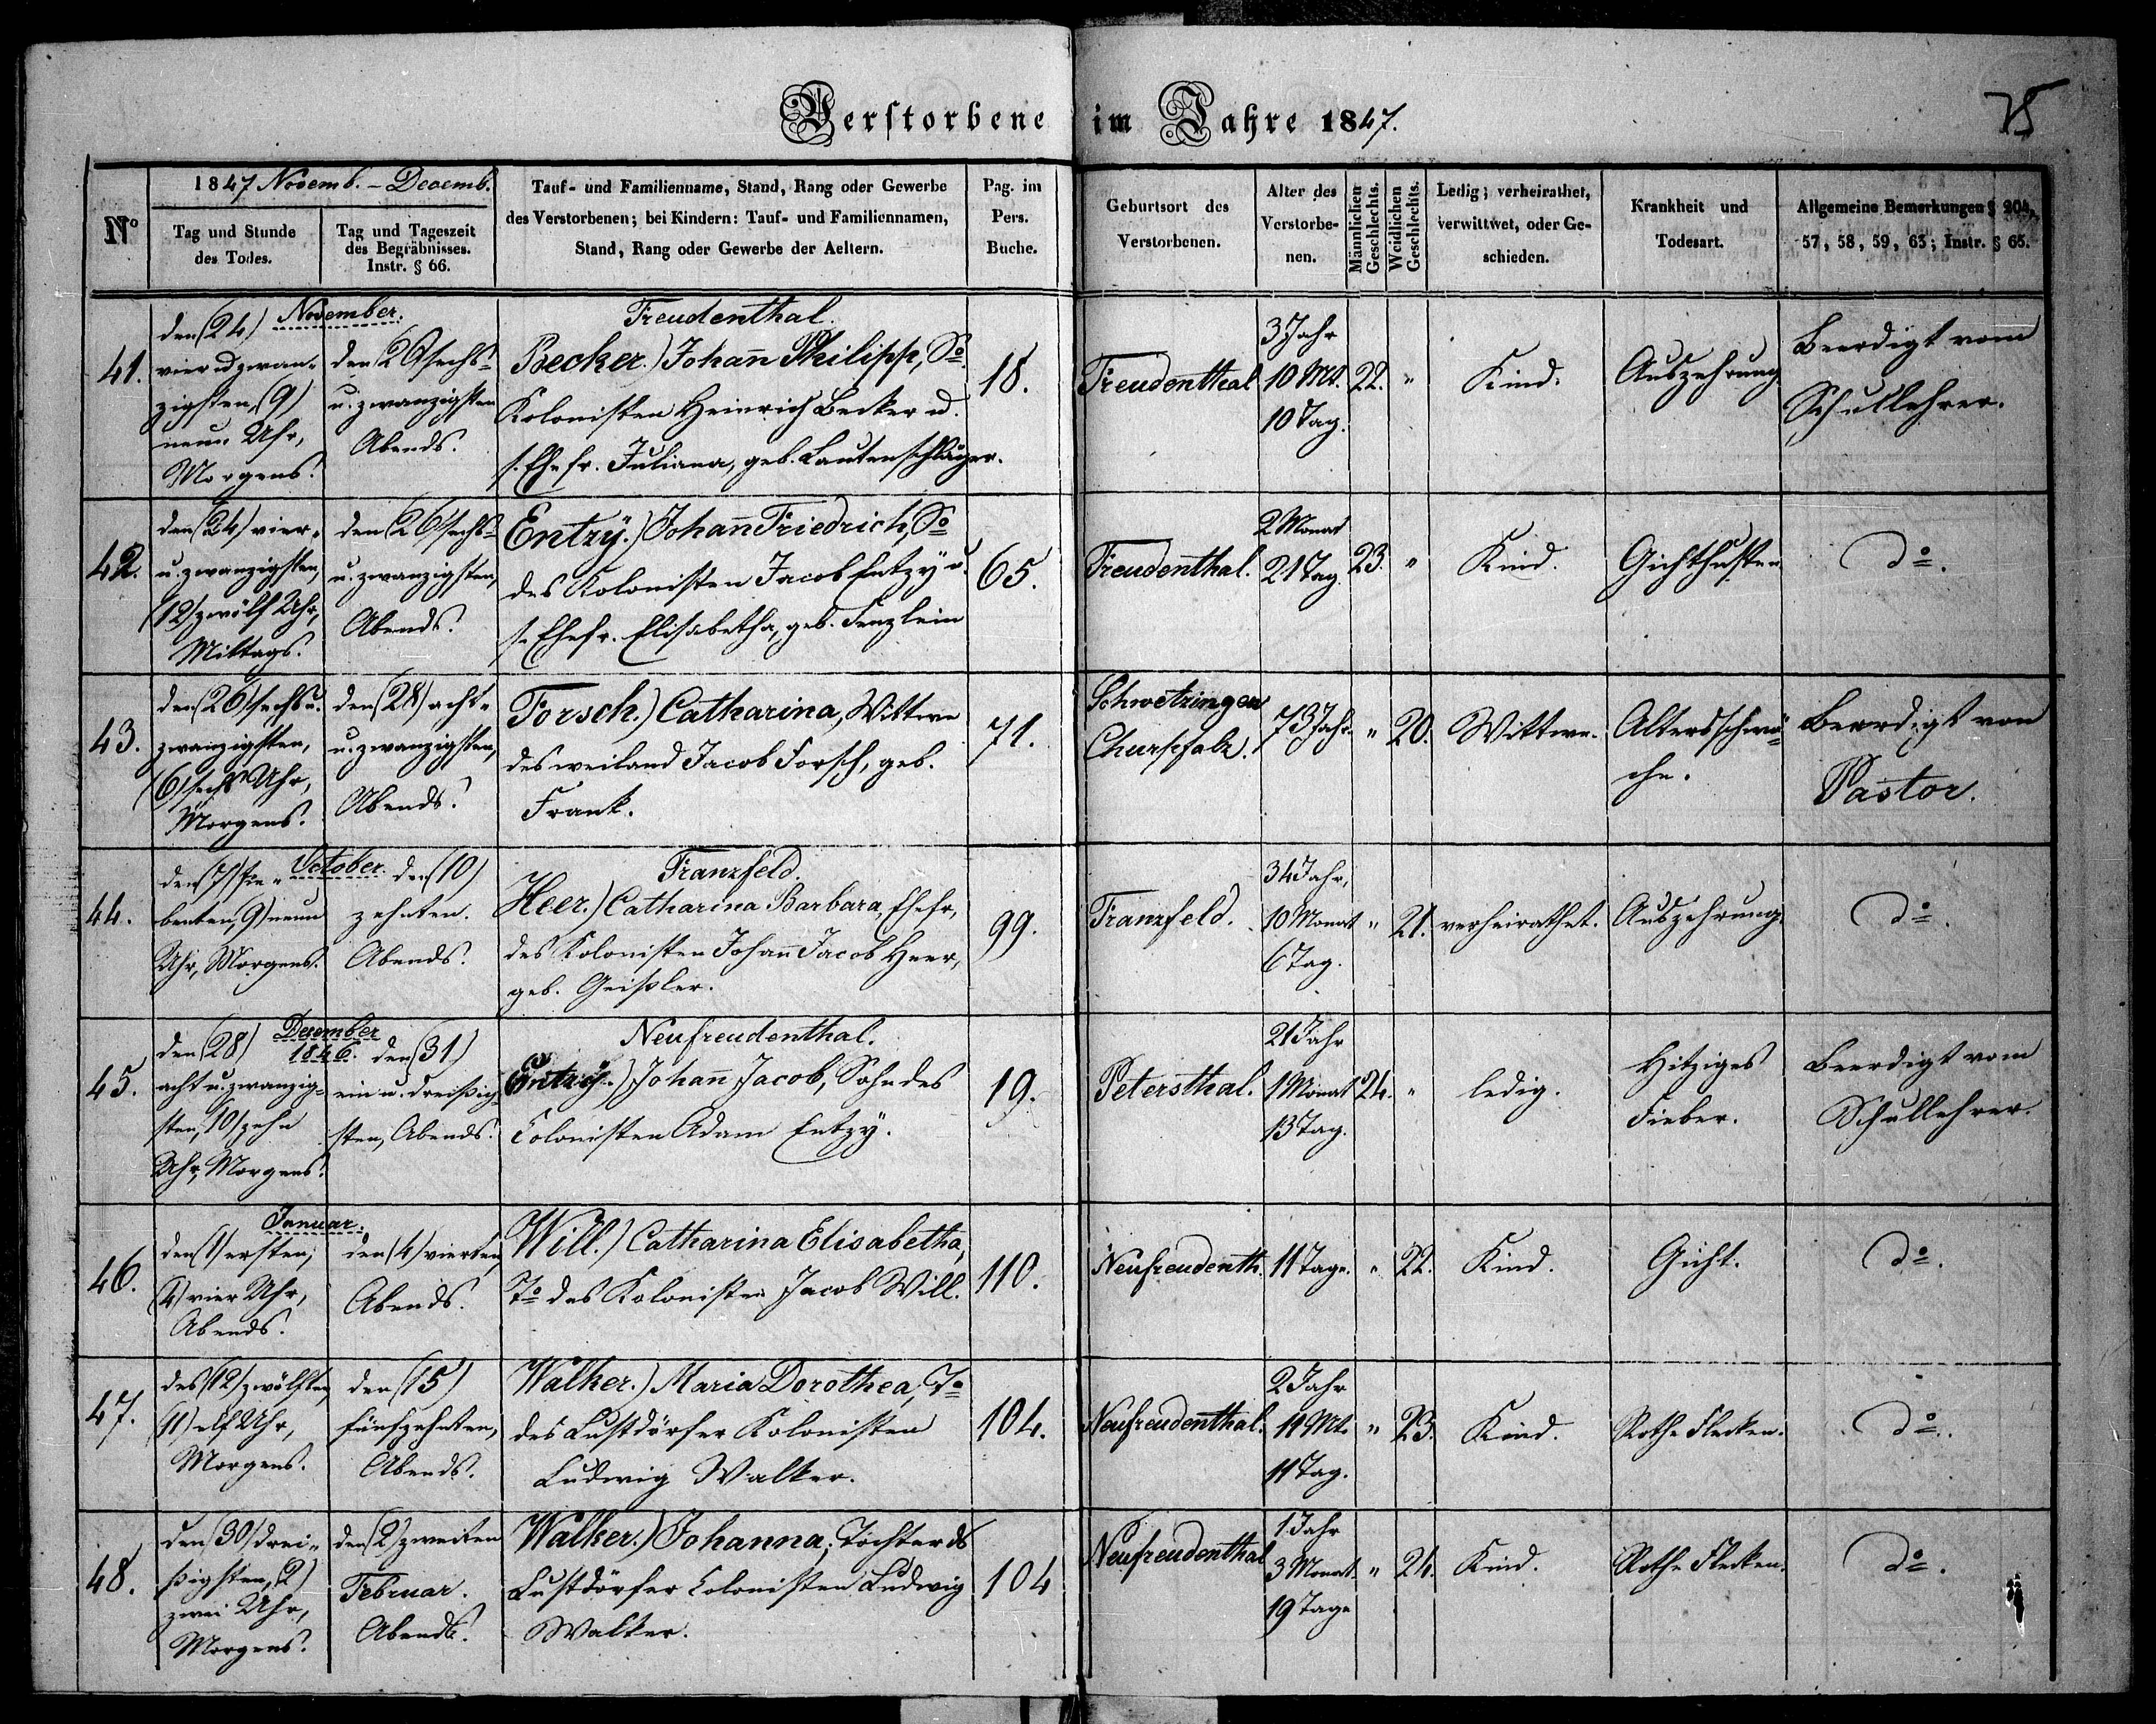 Verstorbene im Jahre 1847.
75
No
1847 Novemb. - Decemb.
Tag und Stunde
des Todes.
Tag und Tageszeit
des Begräbnisses.
Instr. § 66.
Tauf- und Familienname, Stand, Rang oder Gewerbe
des Verstorbenen; bei Kindern: Tauf- und Familiennamen,
Stand, Rang oder Gewerbe der Aeltern.
Pag. im
Pers.
Buche.
Geburtsort des
Verstorbenen.
Alter des
Verstorbe-
nen.
Männlichen
Geschlechts.
Weiblichen
Geschlechts.
Ledig; verheirathet,
verwittwet, oder Ge-
schieden.
Krankheit und
Todesart.
Allgemeine Bemerkungen § 204,
57, 58, 59, 63; Instr. § 65.
41.
November.
den (24)
vierundzwan-
zigsten, (9)
neun Uhr,
Morgens.
den (26) sechs-
u. zwanzigsten
Abends.
Freudenthal.
Becker.) Johann Philipp, So.
Kolonisten Heinrich Becker u.
s. Ehefr. Juliana, geb. Lautenschläger.
18.
Freudenthal
3 Jahr
10 Mt.
10 Tag.
22.
"
Kind.
Auszehrung
Beerdigt vom
Schullehrer.
42.
den (24) vier-
u. zwanzigsten,
(12) zwölf Uhr,
Mittags.
den (26) sechs-
u. zwanzigsten,
Abends.
Entzÿ.) Johann Friedrich, So
des Kolonisten Jacob Entzy u.
s. Ehefr. Elisabetha, geb. Fenzlein
65.
Freudenthal.
2 Monat
21 Tag.
23.
"
Kind.
Gichthusten
do.
43.
den (26) sechs u.
zwanzigsten,
(6) sechs Uhr,
Morgens.
den (28) acht-
u. zwanzigsten,
Abends.
Forsch.) Catharina, Wittwe
des weiland Jacob Forsch, geb.
Frank.
71.
Schwetzingen
Churpfalz.
73 Jahr.
"
20.
Wittwe.
Altersschwä-
che.
Beerdigt von
Pastor.
44.
October.
den (7) sie-
benten, 9) neun
Uhr, Morgens.
den (10)
zehnten.
Abends.
Franzfeld.
Heer.) Catharina Barbara, Ehefr,
des Kolonisten Johann Jacob Heer,
geb. Geißler.
99.
Franzfeld.
34 Jahr,
10 Monat
6 Tag.
"
21.
verheirathet.
Auszehrung.
do.
45.
December
1846.
den (28)
acht u. zwanzig-
sten, 10) zehn
Uhr, Morgens.
den (31)
ein u. dreißig-
sten, Abends.
Neufreudenthal.
Entzÿ.) Johann Jacob, Sohn des
Colonisten Adam Entzy.
19.
Petersthal.
21 Jahr
1 Monat
13 Tag.
24.
"
ledig.
Hitziges
Fieber.
Beerdigt vom
Schullehrer.
46.
Januar.
den (1) ersten,
(4) vier Uhr,
Abends.
den (4) vierten,
Abends.
Will.) Catharina Elisabetha,
To des Kolonisten Jacob Will.
110.
Neufreudenth.
11 Tage.
"
22.
Kind.
Gicht.
do.
47.
des (12) zwölften
(11) elf Uhr,
Morgens.
den (15)
fünfzehnten,
Abends.
Walker.) Maria Dorothea, To
des Lustdörfer Kolonisten
Ludwig Walker.
104.
Neufreudenthal.
2 Jahr
11 Mt.
11 Tag.
"
23.
Kind.
Rothe Flecken.
do.
48.
den (30) drei-
ßigsten, 2)
zwei Uhr,
Morgens.
den (2) zweiten
Februar.
Abends.
Walker.) Johanna, Tochter ds
Lustdörfer Colonisten Ludwig
Walker.
104
Neufreudenthal
1 Jahr
3 Monat
19 Tage
"
24.
Kind.
Rothe Flecken.
do.